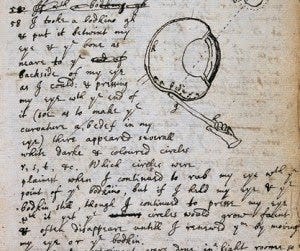 58 I tooke a bodkine gh
& put it betwixt my
eye & ye bone as
neare to ye end of
backside of my eye
as I could: & pressing
my eye wth ye end of
it (soe as to make ye
curvature a, bcdef in my
eye) there appeared severall
white darke & coloured circles
r, s, t, &c. Which circles were
plainest when I continued to rub my eye wth ye
point of ye bodkine, but if I held my eye & ye
bodkin still though I continued to press my eye
wth it yet ye circles would grow faint
& often disappeare untill I renewed ym by moving
my eye or ye bodkin.
done in a light roome
g
h